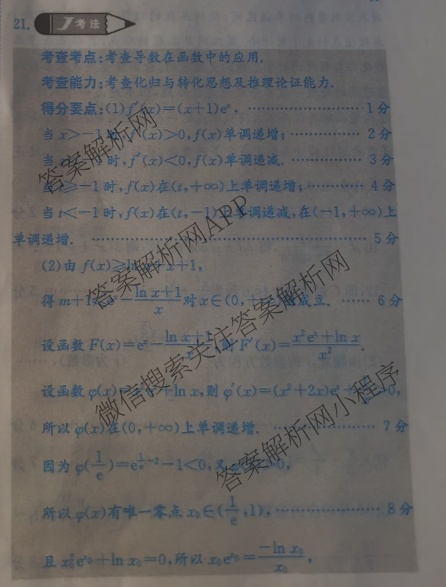 21. 考法
考查考点:考查导数在函数中的应用.
考查能力:考查化归与转化思想及推理论证能力.
得分要点:(1) f′(x)=(x+1)eˣ. …… 1分
当 x>-1时, f′(x)>0, f(x)单调递增; …… 2分
当 时, f′(x)<0, f(x)单调递减. …… 3分
≥-1时, f(x)在(t,+∞)上单调递增; …… 4分
当 t<-1时, f(x)在(t,-1)上单调递减,在(-1,+∞)上
单调递增. …… 5分
(2)由 f(x)≥ x+1,
得 m+1 ln x+1/x 对 x∈(0,+ 成立. …… 6分
设函数 F(x)=eˣ- ln x+ 则 F′(x)=(x²eˣ+ln x)/x².
设函数 φ(x)= +ln x,则 φ′(x)=(x²+2x)eˣ 0,
所以 φ(x)在(0,+∞)上单调递增. …… 7分
因为 φ(1/e)= -1<0,又 0,
所以 φ(x)有唯一零点 x₀∈(1/e,1), …… 8分
且 x₀²eˣ⁰+ln x₀=0,所以 x₀eˣ⁰=(-ln x₀)/x₀,
答案解析网
答案解析网APP
微信搜索关注答案解析网
答案解析网小程序